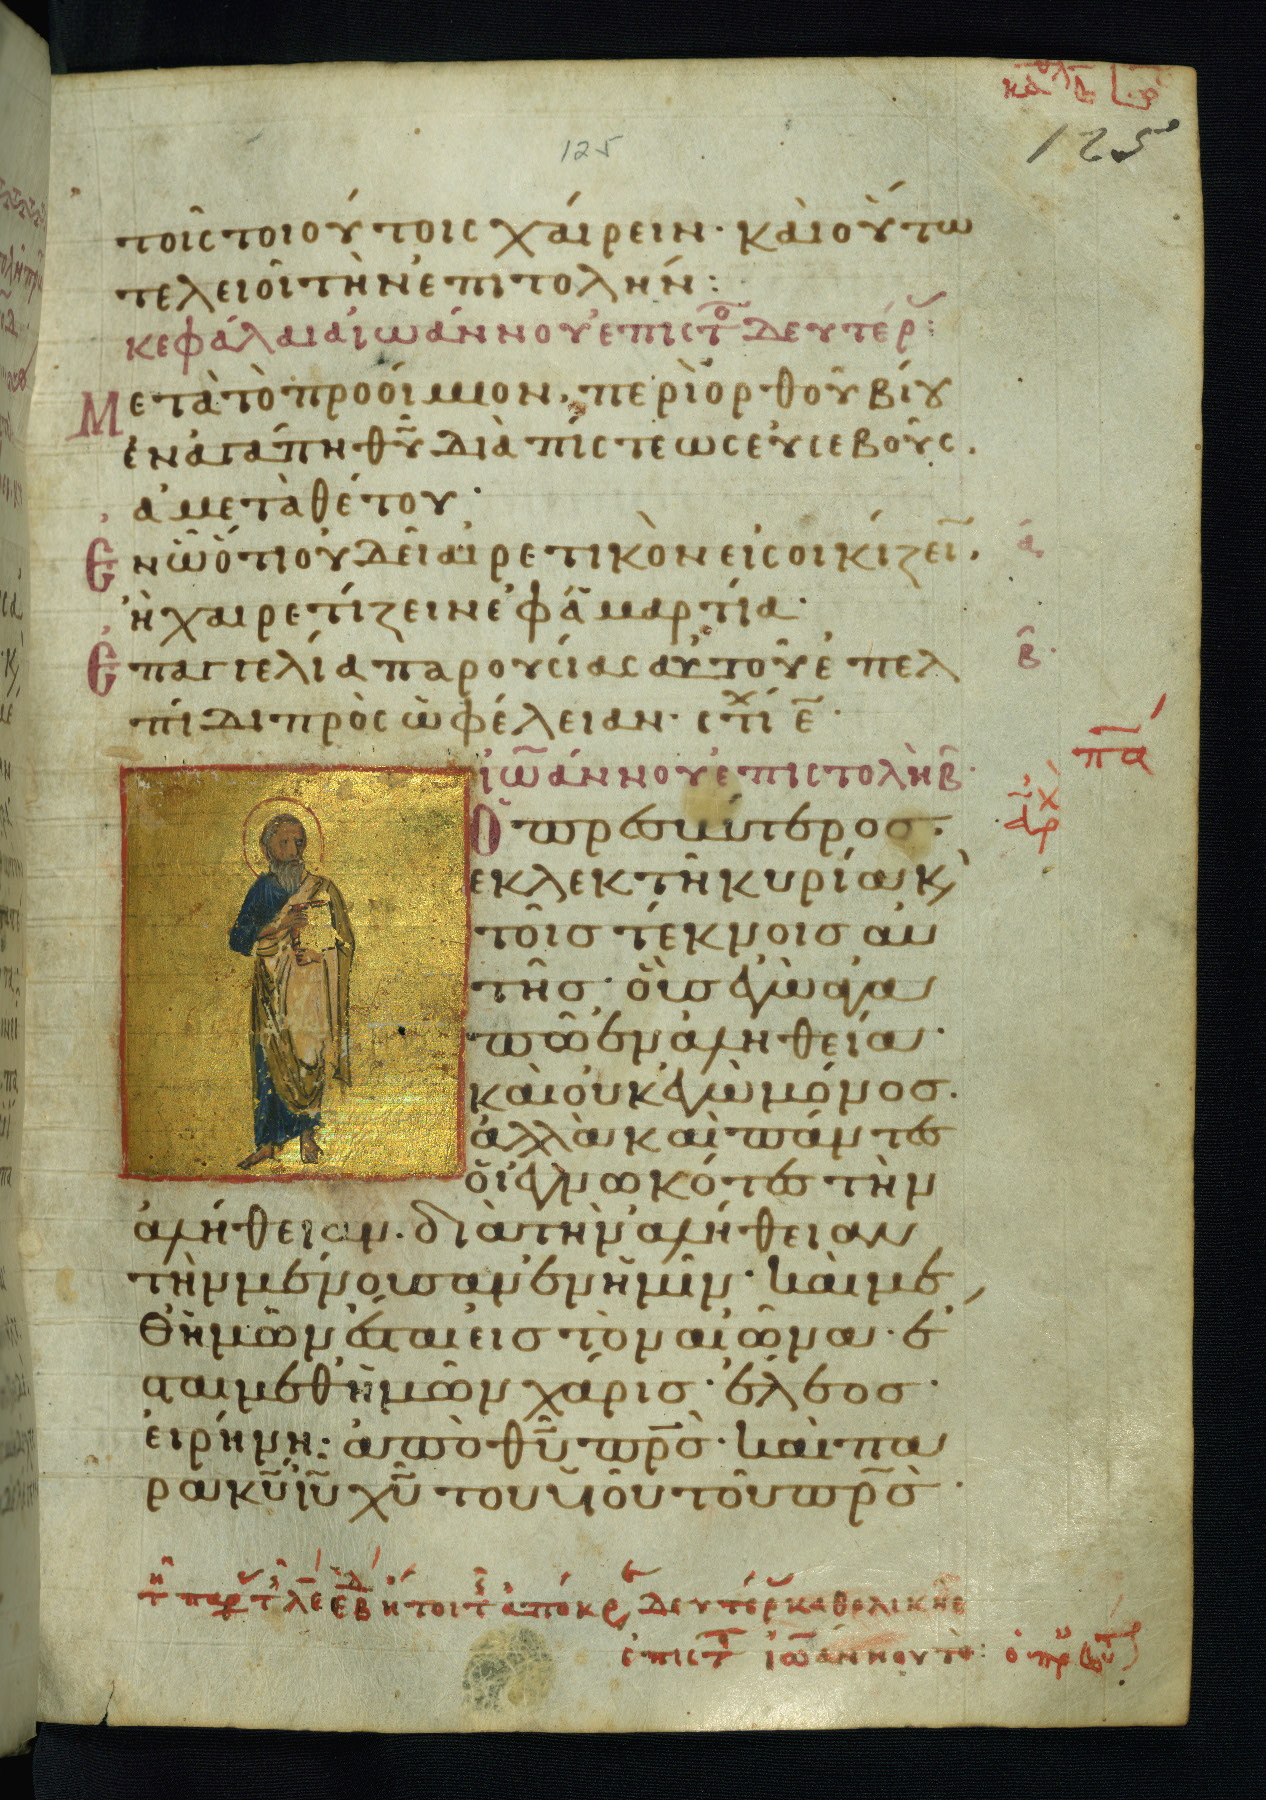 125
125
τοῖς τοιούτοις χαίρειν· καὶ οὕτω
τελειοῖ τὴν ἐπιτολήν:
κεφάλαια ἰωάννου ἐπιστο̅ δευτέρ:
Μετὰ τὸ προοίμιον, περὶ ὀρθοῦ βίου
ἐν ἀγάπη θυ̅ διὰ πίστεως εὐσεβοῦς.
ἀμεταθέτου·
Ἐν ὧ ὅτι οὐ δεῖ αἱρετικὸν εἰσοικίζει̅.
ἢ χαιρετίζειν ἐφ ἁμαρτία·
ά
Ἐπαγγελία παρουσίας αὐτοῦ ἐπ ελ
β
πίδι πρὸς ὠφέλειαν· στίχ ε̅·
ἰω̅άννου ἐπιστολὴ β·
Ὁ πρεσβύτερος.
ἀρχ
ἐκλεκτῆ κυρία κ
τοῖς τέκνοις αυ
τῆς· οὓς ἐγὼ ἀγα
πῶ ἐν ἀληθεία·
καὶ οὐκ ἐγὼ μόνος.
ἀλλὰ καὶ πάντες
οἱ ἐγνωκότες τὴν
ἀλήθειαν. διὰ τὴν ἀλήθειαν
τὴν μένουσαν ἐν ἡμῖν· καὶ με
θ ἡμῶν ἔσται εἰς τὸν αἰῶνα· ἔ
σται μεθ ἡμῶν χάρις· ἔλεος·
εἰρήνη· ἀπὸ θυ̅ πρ̅ς· καὶ πα
ρα κυ̅ ιυ̅ χυ̅ του υἱοῦ τοῦ πρ̅ς·
δευτέρ καθολικῆς
ἐπιστ ἰωάννου τὸ: ὁ πρ